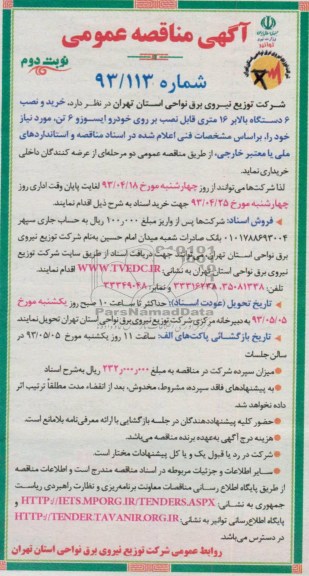 آگهی مناقصه عمومی
نوبت دوم
شماره ۹۳/۱۱۳
شرکت توزیع نیروی برق نواحی استان تهران در نظر دارد، خرید و نصب
۶ دستگاه بالابر ۱۶ متری قابل نصب بر روی خودرو ایسوزو ۶ تن، مورد نیاز
خود را، براساس مشخصات فنی اعلام شده در اسناد مناقصه و استانداردهای
ملی یا معتبر خارجی، از طریق مناقصه عمومی دو مرحله‌ای از عرضه کنندگان داخلی
خریداری نماید.
لذا شرکت‌ها می‌توانند از روز چهارشنبه مورخ ۹۳/۰۴/۱۸ لغایت پایان وقت اداری روز
چهارشنبه مورخ ۹۳/۰۴/۲۵ جهت خرید اسناد به شرح ذیل اقدام نمایند.
فروش اسناد: شرکت‌ها پس از واریز مبلغ ۱۰۰٫۰۰۰ ریال به حساب جاری سپهر
۰۱۰۱۷۸۸۶۹۳۰۰۴ بانک صادرات شعبه میدان امام حسین به‌نام شرکت توزیع نیروی
برق نواحی استان تهران می‌توانند جهت دریافت اسناد از طریق سایت شرکت توزیع
نیروی برق نواحی استان تهران به نشانی: WWW.TVEDC.IR اقدام نمایند.
تلفن: ۳۵۰۸۱۳۳۸، و نمابر: ۳۳۳۴۹۰۴۸
تاریخ تحویل (عودت اسناد): حداکثر تا ساعت ۱۰ صبح روز یکشنبه مورخ
۹۳/۰۵/۰۵ به دبیرخانه مرکزی شرکت توزیع نیروی برق نواحی استان تهران تحویل نمایند.
تاریخ بازگشائی پاکت‌های الف: ساعت ۱۱ روز یکشنبه مورخ ۹۳/۰۵/۰۵ در
سالن جلسات
میزان سپرده شرکت در مناقصه به مبلغ ۲۳۲٫۰۰۰٫۰۰۰ ریال به‌شرح اسناد
به پیشنهادهای فاقد سپرده، مشروط، مخدوش، بعد از انقضاء مدت مطلقاً ترتیب اثر
داده نخواهد شد.
حضور کلیه پیشنهاددهندگان در جلسه بازگشایی با ارائه معرفی‌نامه بلامانع است.
هزینه درج آگهی به‌عهده برنده مناقصه می‌باشد.
شرکت در رد یا قبول یک و یا کل پیشنهادات مختار است.
سایر اطلاعات و جزئیات مربوطه در اسناد مناقصه مندرج است و اطلاعات مناقصه
از طریق پایگاه اطلاع رسانی مناقصات معاونت برنامه‌ریزی و نظارت راهبردی ریاست
جمهوری به نشانی: HTTP://IETS.MPORG.IR/TENDERS.ASPX و
پایگاه اطلاع‌رسانی توانیر به نشانی: HTTP://TENDER.TAVANIR.ORG.IR
در دسترس می‌باشد.
روابط عمومی شرکت توزیع نیروی برق نواحی استان تهران